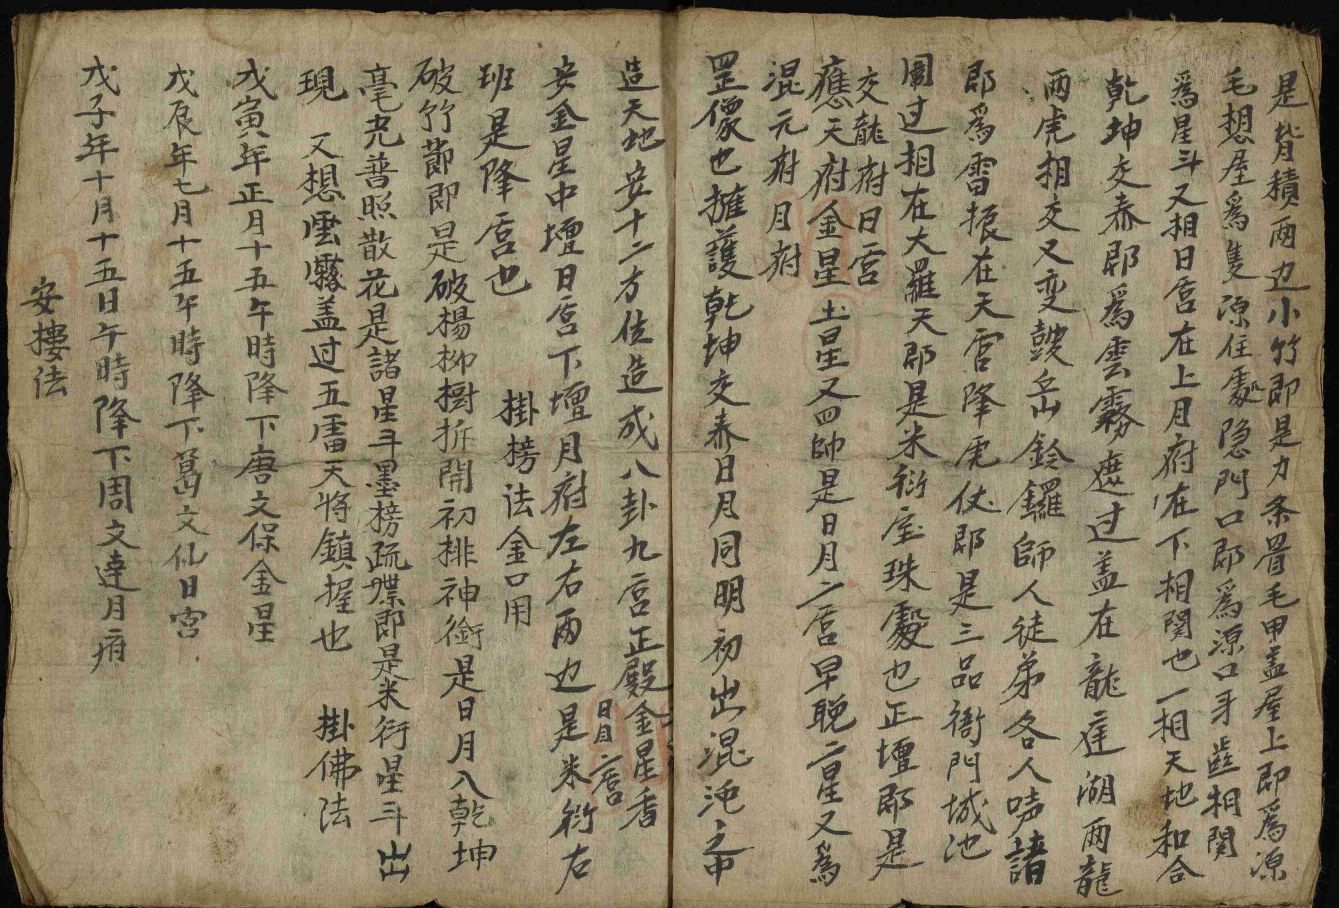 是背積兩边小竹即是力条骨毛甲盖屋上郎爲源
毛想屋爲隻源住處隐門口郎爲源口牙齒相関
爲星斗又相日宫在上月府在下相関也一相天地和合
乾坤交泰郎爲雲霧遮过盖在龍庭湖兩龍
兩虎相交又变鼓岳山鈴鑼師人徒弟各人唠諸
郎爲雷振在天宫降虎伏郎是三品衙門城池
圍过相在大羅天郎是米衍宝珠處也正壇郎是
交龍府日宫
應天府金星土星又四帥是日月二宫早晚二星又爲
混元府月府
罡儌也擁護乾坤交泰日月同明初出混沌之中
造天地安十二方位造成八卦九宫正殿金星香
安金星中壇日宫下壇月府左右兩边是米衍右
日月二宫
班是降宫也 掛榜法金口用
破竹節即是破楊柳樹拆開初排神銜是日月八乾坤
毫光普照散花是諸星斗墨榜疏牒即是米衍星斗出
現 又想雲霧盖过五雷天将鎮握也 掛佛法
戊寅年正月十五午時降下唐文保金星
戊辰年七月十五午時降下葛文仙日宫
戊子年十月十五日午時降下周文達月府
安樓法